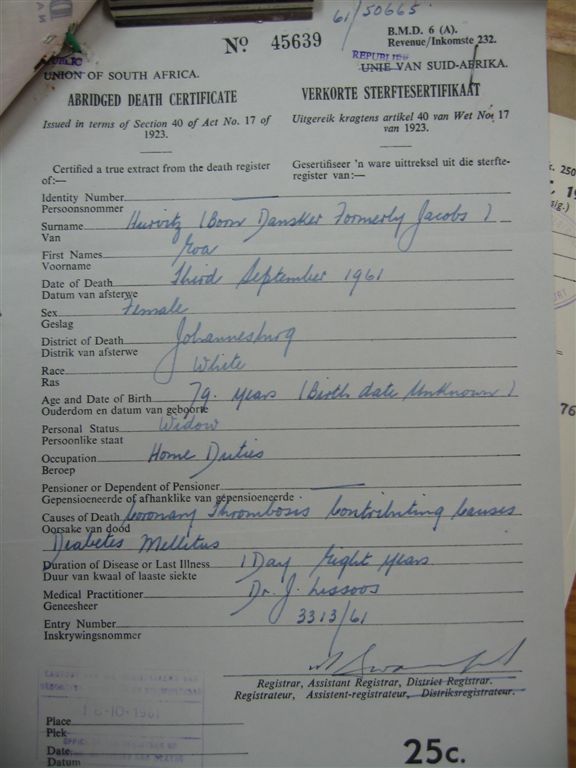 61/50665
B.M.D. 6 (A).
Revenue/Inkomste 232.
No 45639
PUBLIC
REPUBLIEK
UNION OF SOUTH AFRICA.
UNIE VAN SUID-AFRIKA.
ABRIDGED DEATH CERTIFICATE
VERKORTE STERFTESERTIFIKAAT
Issued in terms of Section 40 of Act No. 17 of
1923.
Uitgereik kragtens artikel 40 van Wet No. 17
van 1923.
Certified a true extract from the death register
of:—
Gesertifiseer 'n ware uittreksel uit die sterfte-
register van:—
Identity Number
Persoonsnommer
Surname Hurvitz (Born Dansker Formerly Jacobs)
Van
First Names Eva
Voorname
Date of Death Third September 1961
Datum van afsterwe
Sex Female
Geslag
District of Death Johannesburg
Distrik van afsterwe
Race White
Ras
Age and Date of Birth 79. years (Birth date Unknown)
Ouderdom en datum van geboorte
Personal Status Widow
Persoonlike staat
Occupation Home Duties
Beroep
Pensioner or Dependent of Pensioner
Gepensioeneerde of afhanklike van gepensioeneerde
Causes of Death Coronary Thrombosis Contributing Causes
Oorsake van dood
Diabetes Mellitus
Duration of Disease or Last Illness 1 Day Eight years
Duur van kwaal of laaste siekte
Medical Practitioner Dr. J. Lissoos
Geneesheer
Entry Number 3313/61
Inskrywingsnommer
Registrar, Assistant Registrar, District Registrar.
Registrateur, Assistent-registrateur, Distriksregistrateur.
18-10-1961
Place
Plek
Date
Datum
25c.
250
19
sig.)
76